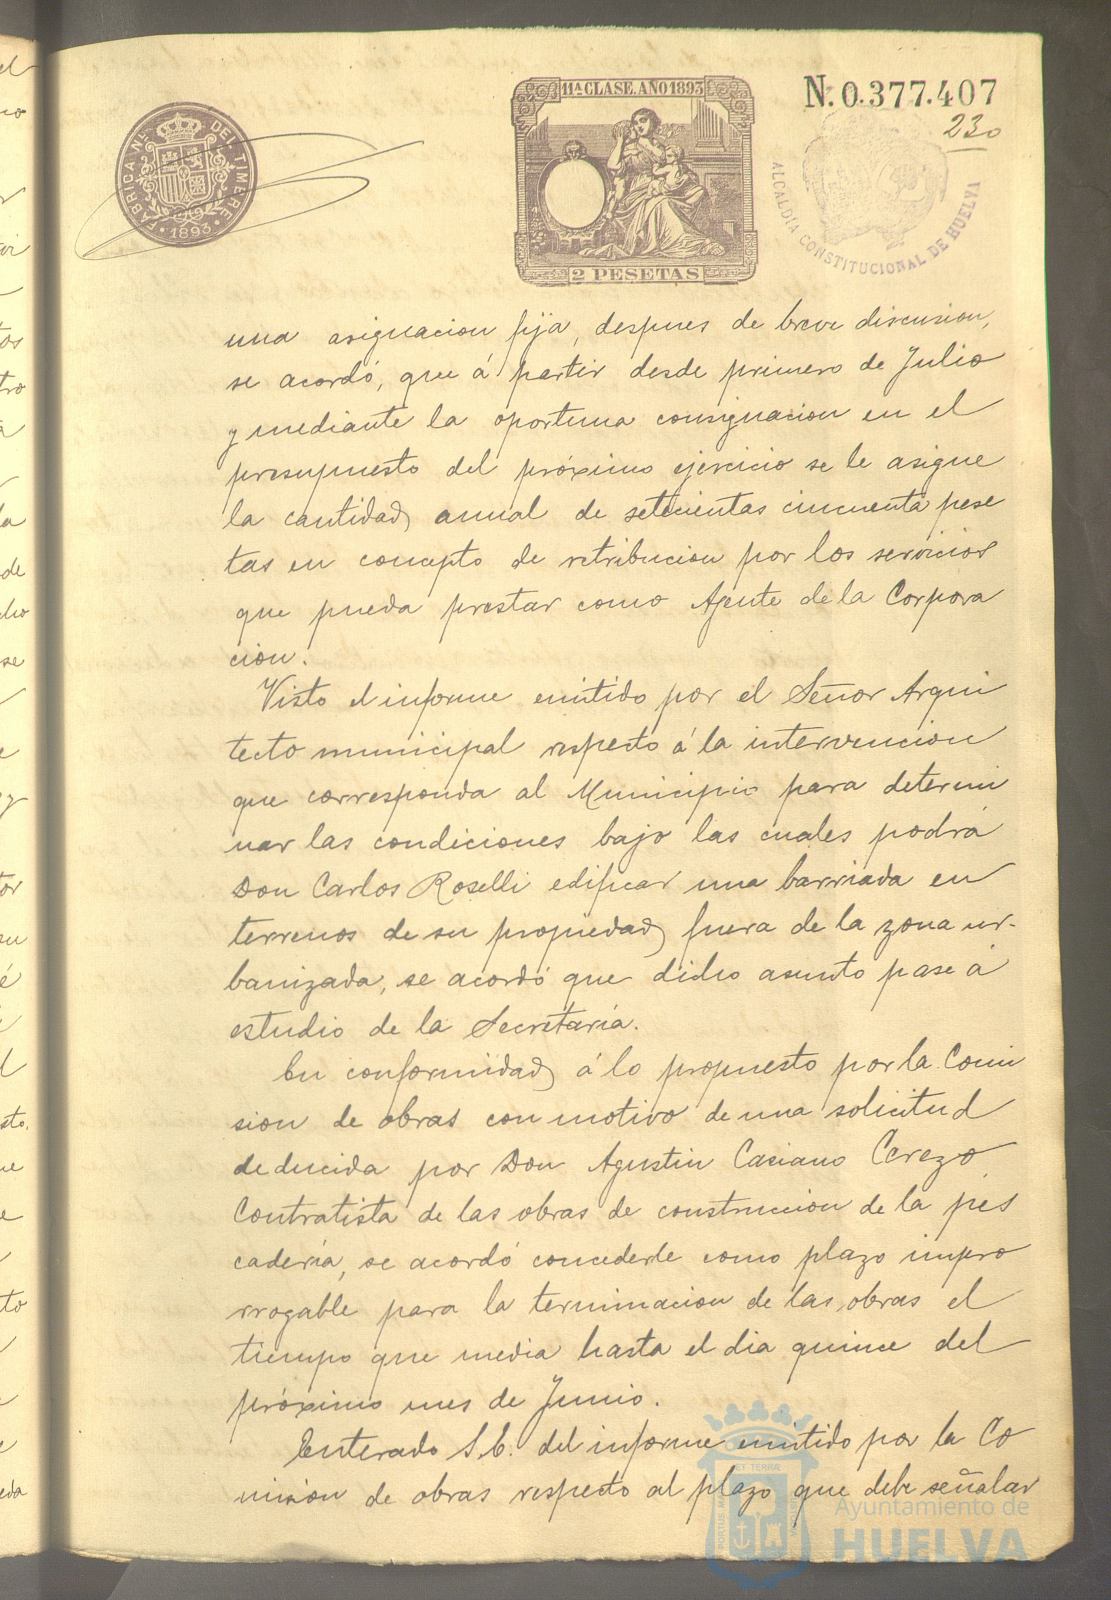 11ª CLASE. AÑO 1893
N. 0.377.407
230
FABRICA NL. DEL TIMBRE
1893
ALCALDÍA CONSTITUCIONAL DE HUELVA
2 PESETAS
una asignacion fija, despues de breve discusion,
se acordó, que á partir desde primero de Julio
y mediante la oportuna consignacion en el
presupuesto del próximo ejercicio se le asigne
la cantidad anual de setecientas cincuenta pese
tas en concepto de retribucion por los servicios
que pueda prestar como Agente de la Corpora
cion.
Visto el informe emitido por el Señor Arqui
tecto municipal respecto á la intervencion
que corresponda al Municipio para determi
nar las condiciones bajo las cuales podrá
Don Carlos Roselli edificar una barriada en
terrenos de su propiedad fuera de la zona ur-
banizada, se acordó que dicho asunto pase á
estudio de la Secretaría.
En conformidad á lo propuesto por la Comi
sion de obras con motivo de una solicitud
deducida por Don Agustin Casiano Cerezo
Contratista de las obras de construccion de la pes
cadería, se acordó concederle como plazo impro
rrogable para la terminacion de las obras el
tiempo que media hasta el dia quince del
próximo mes de Junio.
Enterado S.E. del informe emitido por la Co
mision de obras respecto al plazo que debe señalar
PORTUS MARIS ET TERRÆ
Ayuntamiento de
HUELVA